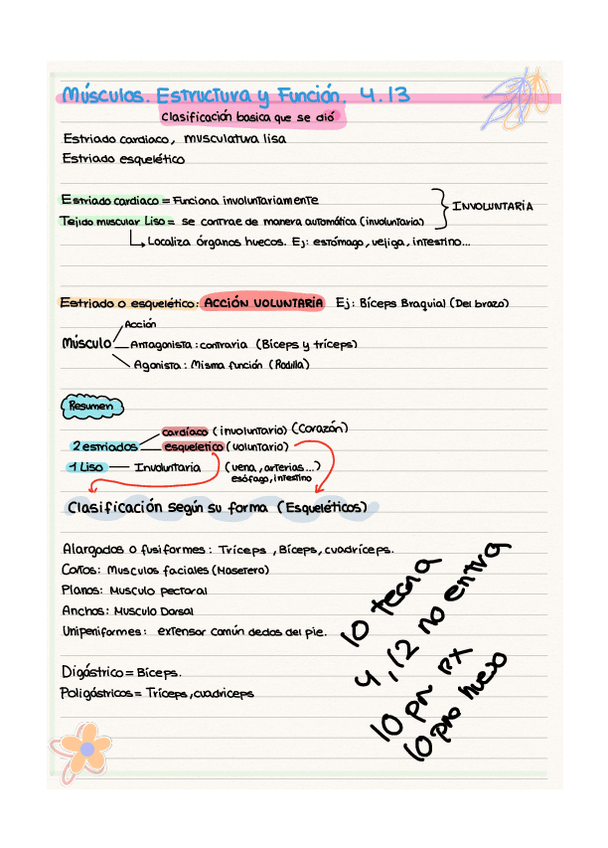 Músculos. Estructura y Función. 4.13
Clasificación basica que se dió
Estriado cardiaco, musculatura lisa
Estriado esquelético
Estriado cardiaco = Funciona involuntariamente
Tejido muscular Liso = se contrae de manera automática (involuntaria)
INVOLUNTARIA
Localiza órganos huecos. Ej: estómago, vejiga, intestino...
Estriado o esquelético: ACCIÓN VOLUNTARIA Ej: Bíceps Braquial (Del brazo)
Acción
Músculo Antagonista: contraria (Bíceps y tríceps)
Agonista: Misma función (Rodilla)
Resumen
cardíaco (involuntario) (Corazón)
2 estriados esquelético (voluntario)
1 Liso Involuntaria (vena, arterias...)
esófago, intestino
Clasificación según su forma (Esqueléticos)
Alargados o fusiformes: Tríceps, Bíceps, cuadríceps.
Cortos: Musculos faciales (Masetero)
Planos: Musculo pectoral
Anchos: Musculo Dorsal
Unipeniformes: extensor común dedos del pie.
Digástrico = Bíceps.
Poligástricos = Tríceps, cuadriceps
10 tecna
4,12 no entra
10 pr rx
10 pro hueso